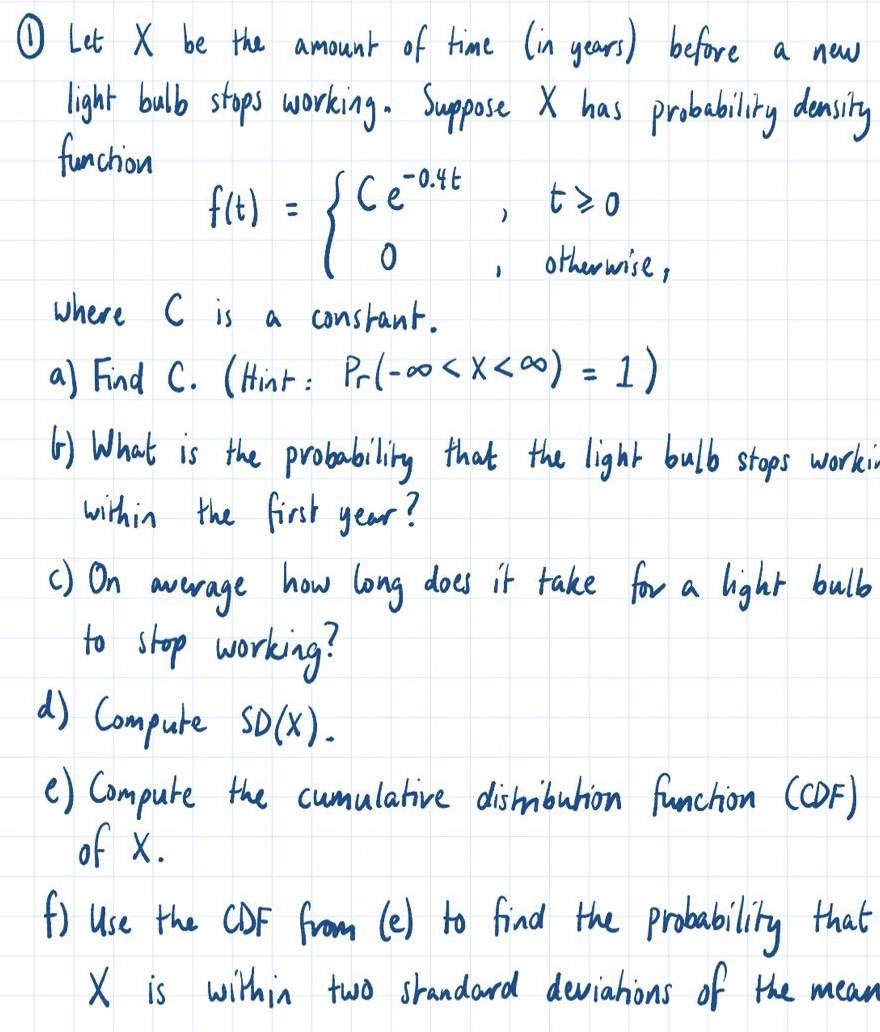 ① Let X be the amount of time (in years) before a new
light bulb stops working. Suppose X has probability density
function
f(t) = { Ce^-0.4t , t ⩾ 0
0 , otherwise,
where C is a constant.
a) Find C. (Hint: Pr(-∞ < X < ∞) = 1)
b) What is the probability that the light bulb stops workin
within the first year?
c) On average how long does it take for a light bulb
to stop working?
d) Compute SD(X).
e) Compute the cumulative distribution function (CDF)
of X.
f) Use the CDF from (e) to find the probability that
X is within two standard deviations of the mean